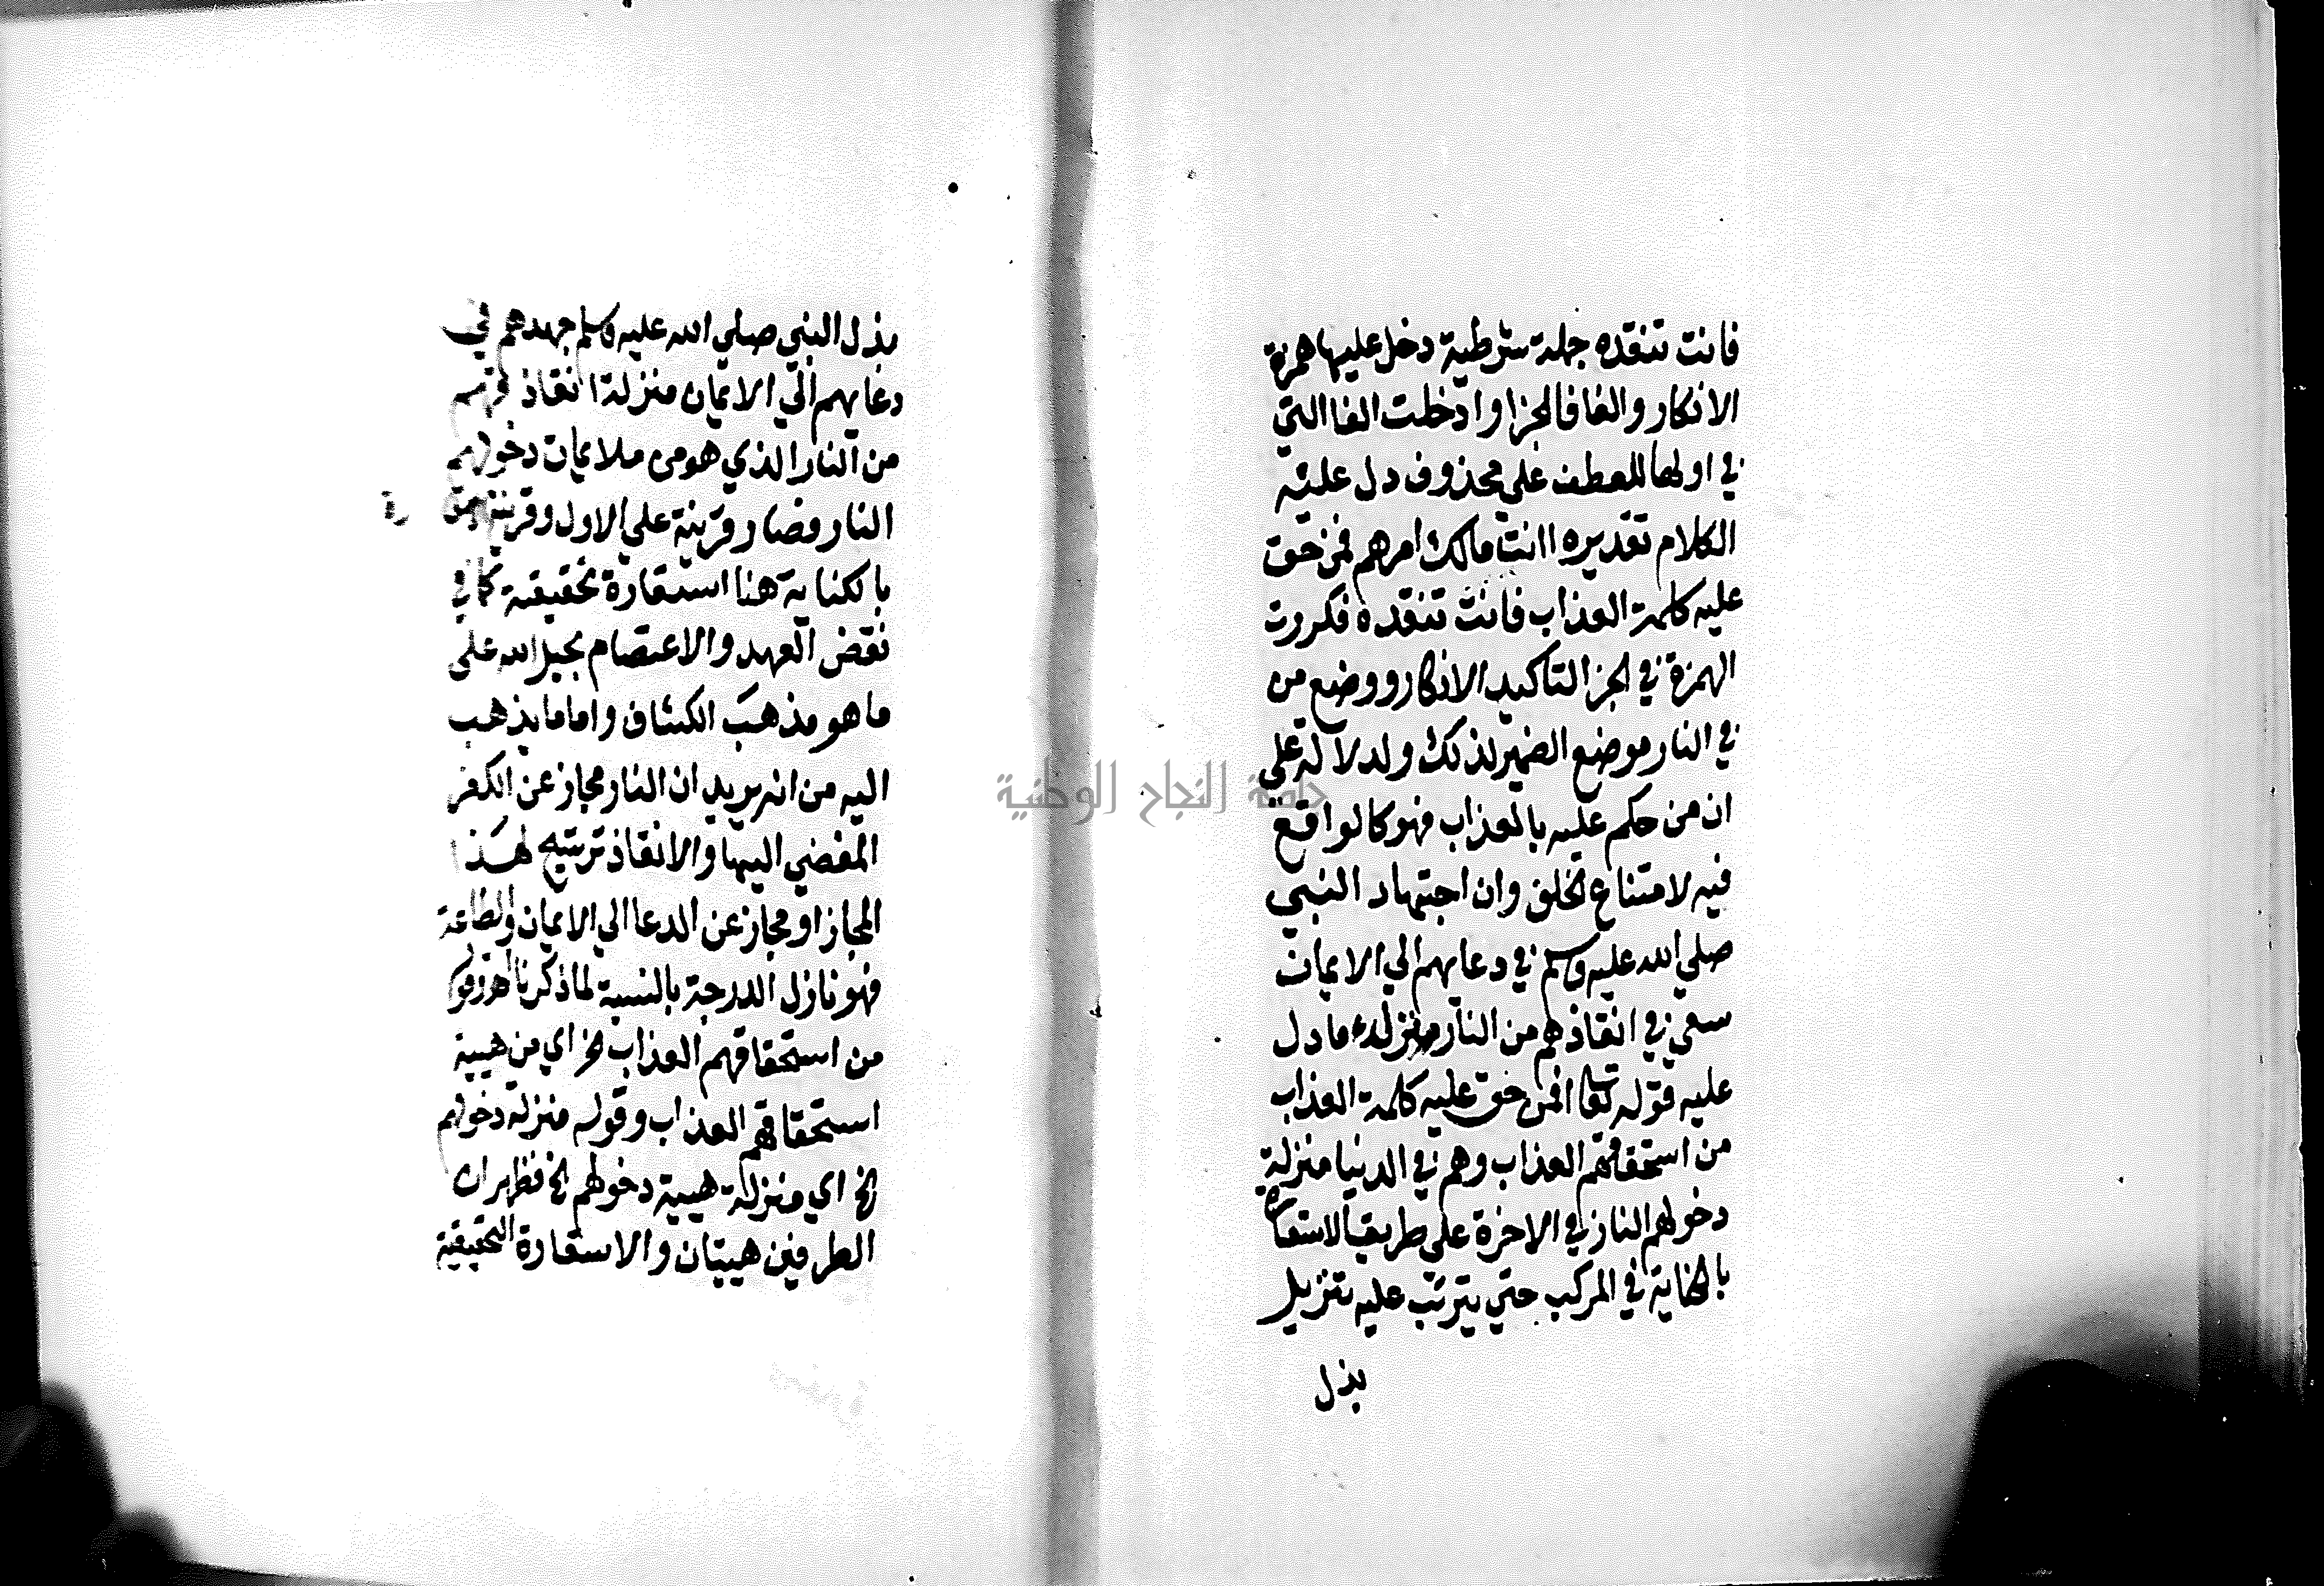 فانت تنقده جملة شرطية دخل عليها همزة
الانكار والفا فالجزا وادخلت الفا التي
في اولها للعطف علي محذوف دل عليه
الكلام تقديره اانت مالك امرهم فمن حق
عليه كلمة العذاب فانت تنقده فكررت
الهمزة في الجزا لتاكيد الانكار ووضع من
في النار موضع الضمير لذلك ولدلالة علي
ان من حكم عليه بالعذاب فهو كالواقع
فيه لامتناع الخلف وان اجتهاد النبي
صلي الله عليه وسلم في دعايهم الي الايمان
سعي في انقاذهم من النار منزلة ما دل
عليه قوله تعا افمن حق عليه كلمة العذاب
من استحقاقهم العذاب وهم في الدنيا منزلة
دخولهم النار في الاخرة علي طريق الاستعارة
بالكناية في المركب حتي يترتب عليه تنزيل
بذل
بذل النبي صلي الله عليه وسلم جهدهم في
دعايهم الي الايمان منزلة انقاذهم
من النار الذي هو من ملايمات دخولهم
النار وصار قرينة علي الاول وقرينة
بالكناية هنا استعارة تحقيقية كما في
نقض العهد والاعتصام بحبل الله علي
ما هو مذهب الكشاف واما ما يذهب
اليه من انه يريد ان النار مجاز عن الكفر
المفضي اليها والانقاذ ترشيح لهذا
المجاز او مجاز عن الدعا الي الايمان والطاعة
فهو نازل الدرجة بالنسبة لما ذكرنا
من استحقاقهم العذاب الخ اي من هيية
استحقاقهم العذاب وقوله منزلة دخولهم
الخ اي منزلة هيية دخولهم الخ فظهر ان
الطرفين هييتان والاستعارة التحقيقية
جامعة النجاح الوطنية